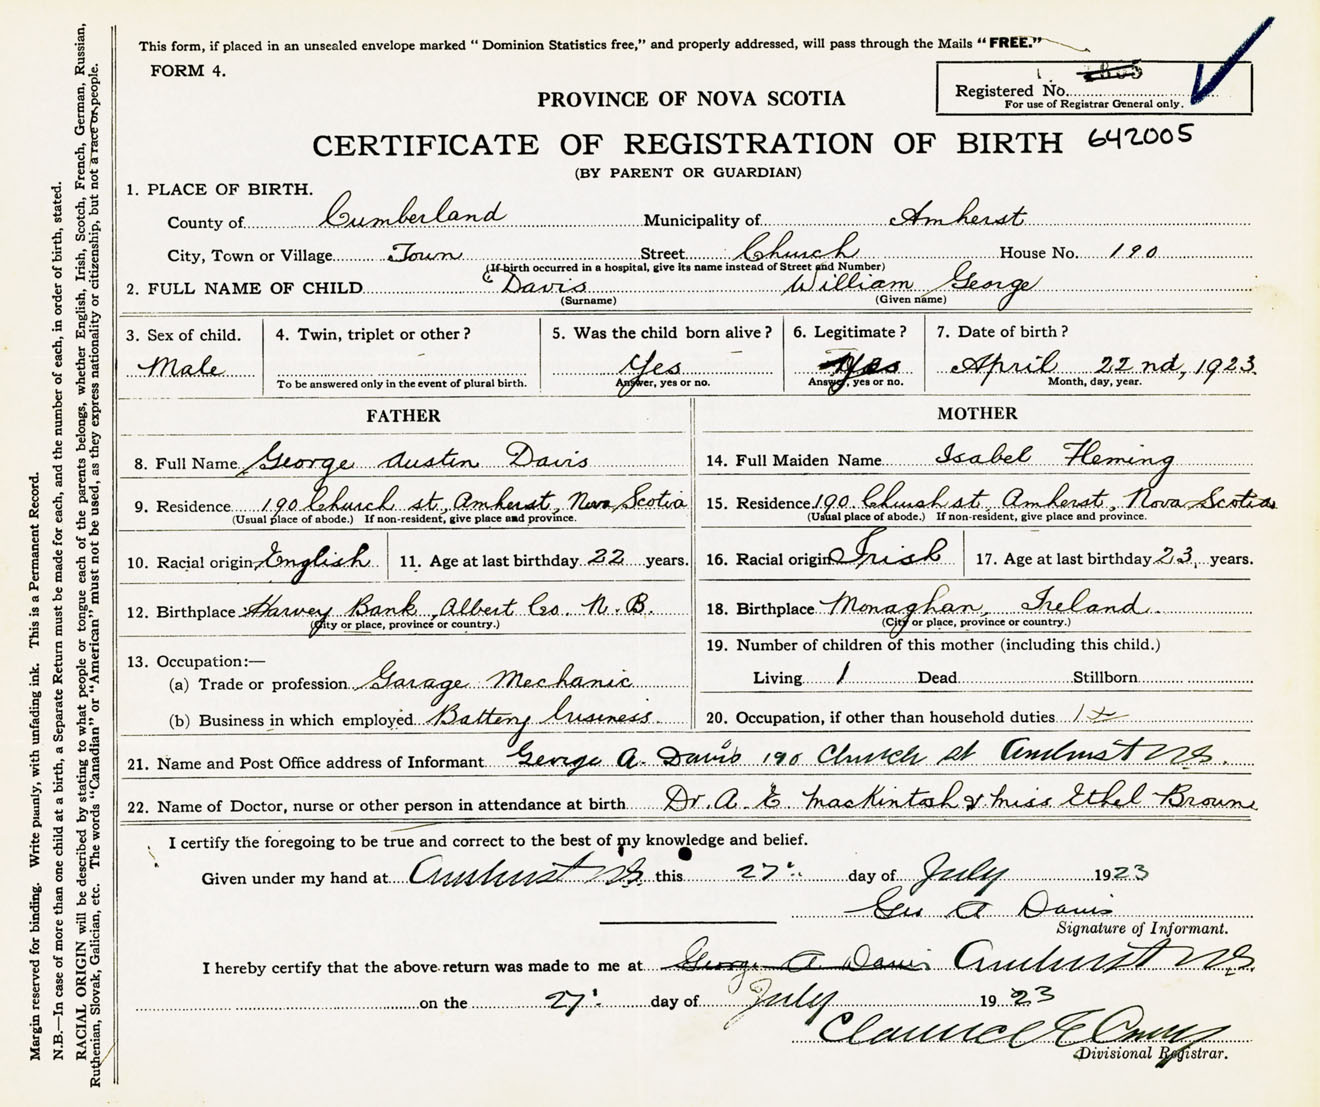 This form, if placed in an unsealed envelope marked "Dominion Statistics free," and properly addressed, will pass through the Mails "FREE."
FORM 4.
Registered No.
For use of Registrar General only.
PROVINCE OF NOVA SCOTIA
CERTIFICATE OF REGISTRATION OF BIRTH 642005
(BY PARENT OR GUARDIAN)
1. PLACE OF BIRTH.
County of Cumberland Municipality of Amherst
City, Town or Village Town Street Church House No. 190
(If birth occurred in a hospital, give its name instead of Street and Number)
2. FULL NAME OF CHILD Davis William George
(Surname) (Given name)
3. Sex of child. 4. Twin, triplet or other? 5. Was the child born alive? 6. Legitimate? 7. Date of birth?
Male - Yes - Yes April 22nd, 1923.
To be answered only in the event of plural birth. Answer, yes or no. Answer, yes or no. Month, day, year.
FATHER
8. Full Name George Austin Davis
9. Residence 190 Church st, Amherst, Nova Scotia
(Usual place of abode.) If non-resident, give place and province.
10. Racial origin English 11. Age at last birthday 22 years.
12. Birthplace Harvey Bank, Albert Co. N.B.
(City or place, province or country.)
13. Occupation:—
(a) Trade or profession Garage Mechanic
(b) Business in which employed Battery business
MOTHER
14. Full Maiden Name Isabel Fleming
15. Residence 190 Church st, Amherst, Nova Scotia
(Usual place of abode.) If non-resident, give place and province.
16. Racial origin Irish 17. Age at last birthday 23, years.
18. Birthplace Monaghan, Ireland.
(City or place, province or country.)
19. Number of children of this mother (including this child.)
Living 1 Dead Stillborn
20. Occupation, if other than household duties
21. Name and Post Office address of Informant George A. Davis 190 Church st Amherst NS.
22. Name of Doctor, nurse or other person in attendance at birth Dr. A. E. MacKintosh & Miss Ethel Browne
I certify the foregoing to be true and correct to the best of my knowledge and belief.
Given under my hand at Amherst NS. this 27 day of July 1923
Geo A Davis
Signature of Informant.
I hereby certify that the above return was made to me at George A Davis Amherst NS.
on the 27 day of July 1923
Clarence E
Divisional Registrar.
Margin reserved for binding. Write plainly, with unfading ink. This is a Permanent Record.
N.B.—In case of more than one child at a birth, a Separate Return must be made for each, and the number of each, in order of birth, stated.
RACIAL ORIGIN will be described by stating to what people or tongue each of the parents belongs, whether English, Irish, Scotch, French, German, Russian,
Ruthenian, Slovak, Galician, etc. The words "Canadian" or "American" must not be used, as they express nationality or citizenship, but not a race or people.